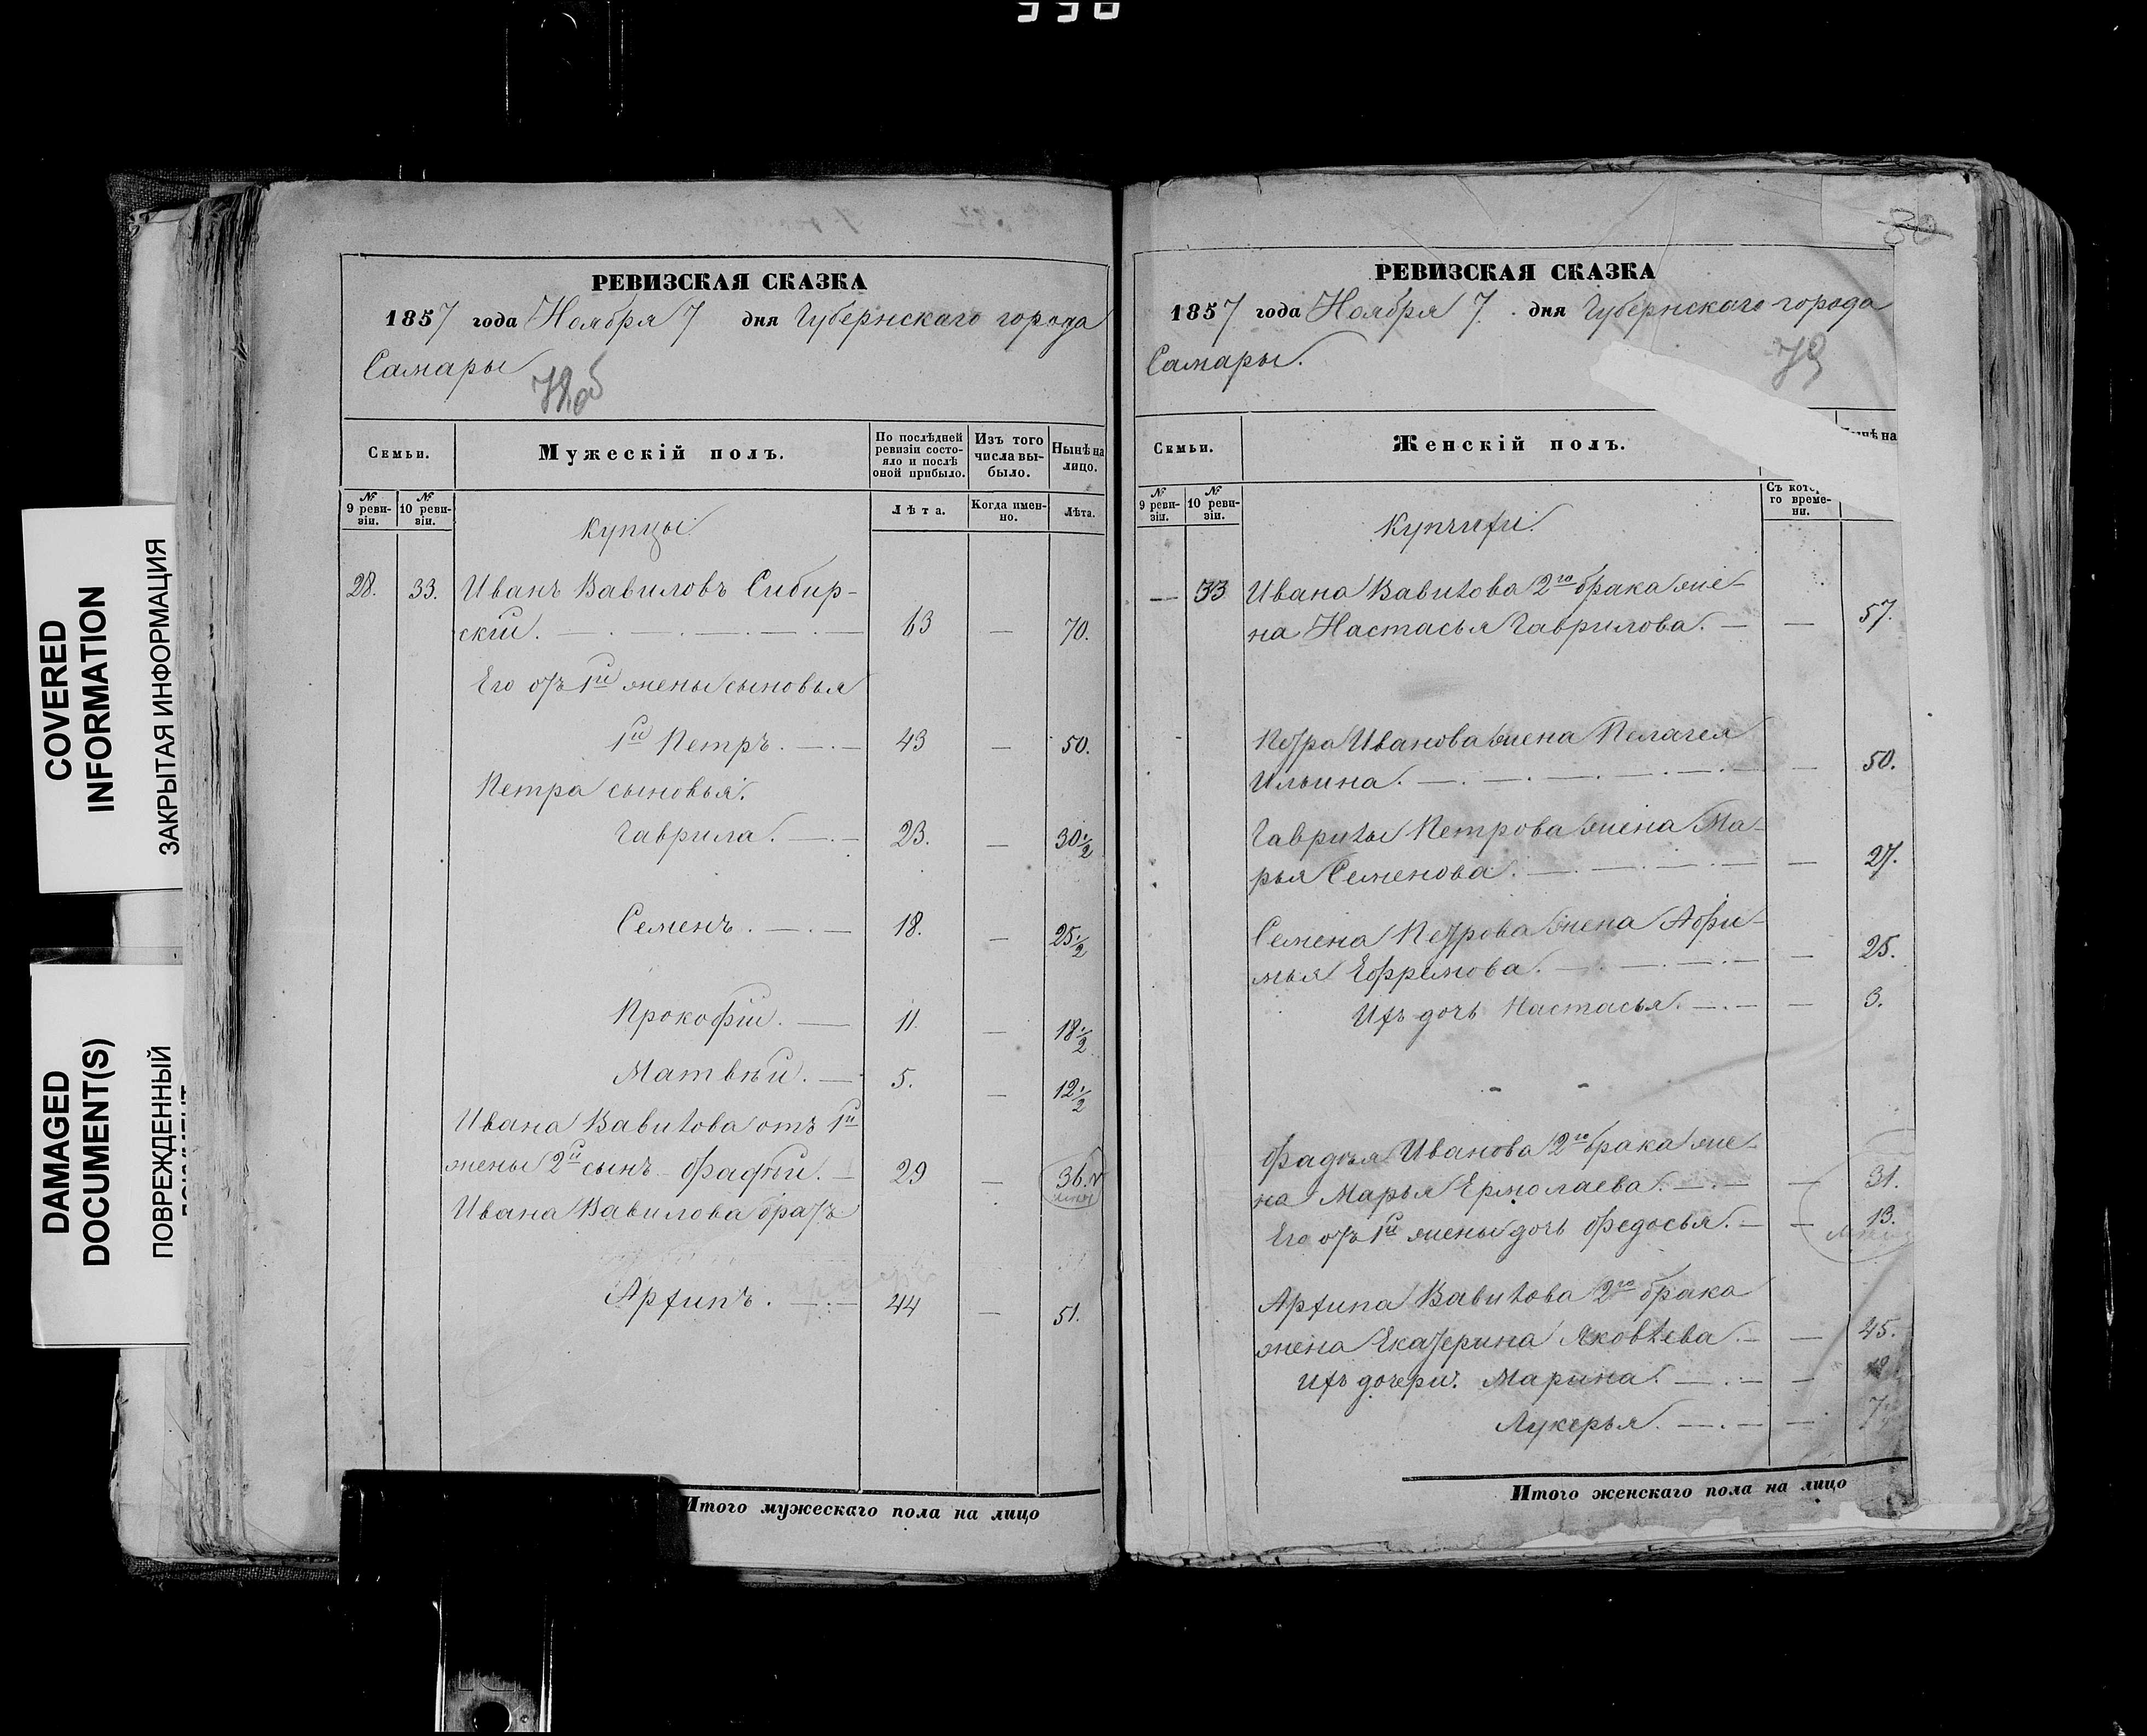 COVERED
INFORMATION
ЗАКРЫТАЯ ИНФОРМАЦИЯ
DAMAGED
DOCUMENT(S)
ПОВРЕЖДЕННЫЙ
РЕВИЗСКАЯ СКАЗКА
1857 года Ноября 7 дня Губернскаго города
Самары
78об
Семьи.
Мужескій полъ.
По послѣдней ревизіи состояло и послѣ оной прибыло.
Изъ того числа выбыло.
Нынѣ на лицо.
№ 9 ревизіи.
№ 10 ревизіи.
Лѣта.
Когда именно.
Лѣта.
Купцы
28. 33. Иванъ Вавиловъ Сибир-
скій. — 63 — 70.
Его отъ 1й жены сыновья
1й Петръ. — 43 — 50.
Петра сыновья.
Гаврила. — 23. — 30 1/2
Семенъ. — 18. — 25 1/2
Прокофій. — 11. — 18 1/2
Матвѣй. — 5. — 12 1/2
Ивана Вавилова отъ 1й
жены 2й сынъ Фадѣй. — 29 — 36.
Ивана Вавилова братъ
Архипъ. — 44 — 51.
Итого мужескаго пола на лицо
80
РЕВИЗСКАЯ СКАЗКА
1857 года Ноября 7. дня Губернскаго города
Самары.
79
Семьи.
Женскій полъ.
№ 9 ревизіи.
№ 10 ревизіи.
го времени.
Купчихи.
— 33 Ивана Вавилова 2го брака же-
на Настасья Гаврилова. — — 57.
Петра Иванова жена Пелагея
Ильина. — — 50.
Гаврилы Петрова жена Ма-
рья Семенова. — — 27.
Семена Петрова жена Афи-
мья Ефремова. — — 25.
Ихъ дочь Настасья. — — 3.
Фадѣя Иванова 2го брака же-
на Марья Ермолаева. — — 31.
Его отъ 1й жены дочь Федосья. — — 13.
Архипа Вавилова 2го брака
жена Екатерина Яковлева. — — 45.
Ихъ дочери: Марина. — —
Лукерья. — — 7
Итого женскаго пола на лицо